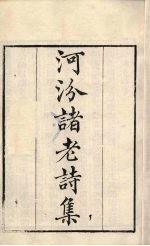 河汾諸老詩集